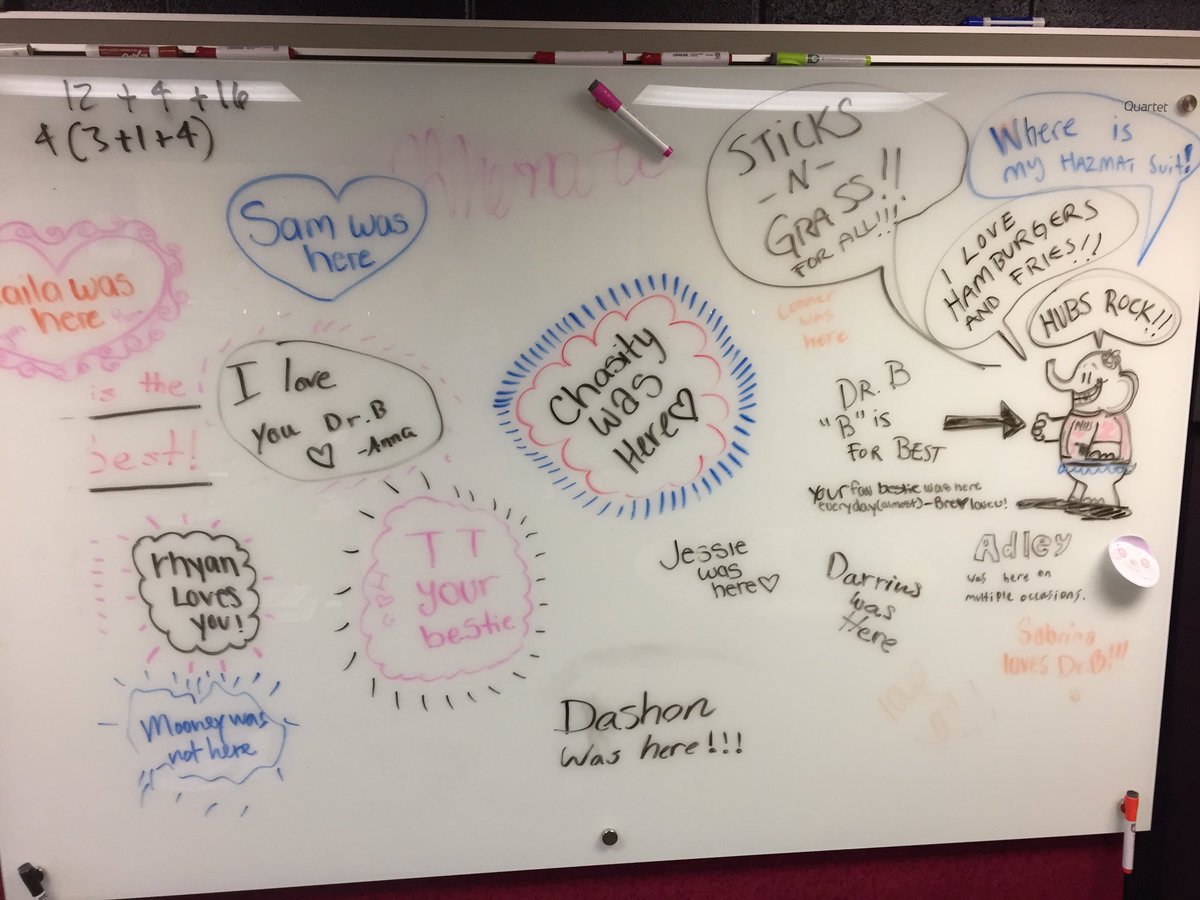 12 + 4 + 16
4 (3+1+4)
Quartet
STICKS
-N-
GRASS!!
FOR ALL!!!
Where is
my HAZMAT Suit!
I LOVE
HAMBURGERS
AND FRIES!!
HUBS ROCK!!
Sam was
here
aila was
here
is the
best!
I love
you Dr.B
♡ -Anna
Chasity
was
Here♡
Conner
was
here
DR. B
"B" is
FOR BEST
NHS
Your fav bestie was here
everyday (almost) - Bre ♥ loves u!
rhyan
Loves
you!
TT
your
bestie
Jessie
was
here♡
Darrius
was
Here
Adley
was here on
multiple occasions.
Sabrina
loves Dr.B!!!
Mooney was
not here
Dashon
was here!!!
love